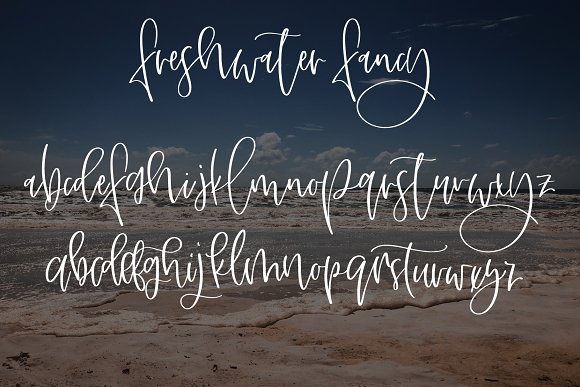 freshwater fancy
abcdefghijklmnopqrstuvwxyz
abcdefghijklmnopqrstuvwxyz